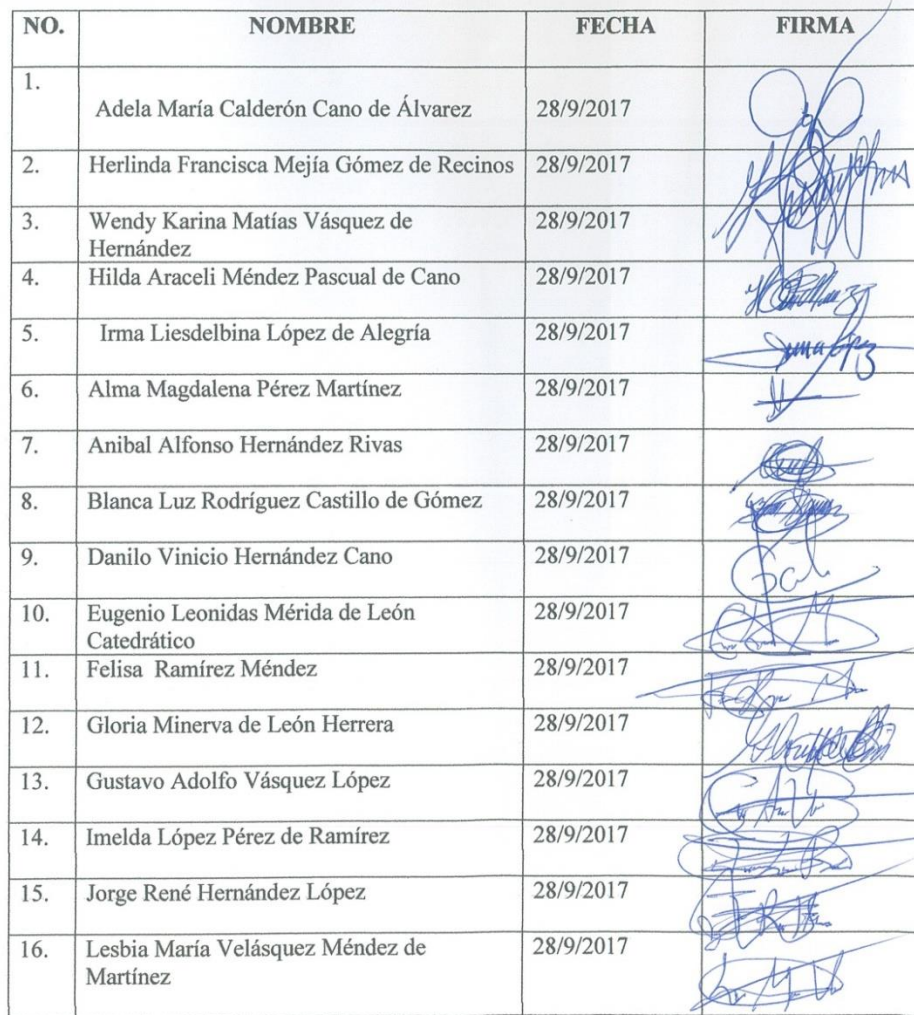 NO. NOMBRE FECHA FIRMA
1. Adela María Calderón Cano de Álvarez 28/9/2017
2. Herlinda Francisca Mejía Gómez de Recinos 28/9/2017
3. Wendy Karina Matías Vásquez de 28/9/2017
Hernández
4. Hilda Araceli Méndez Pascual de Cano 28/9/2017
5. Irma Liesdelbina López de Alegría 28/9/2017
6. Alma Magdalena Pérez Martínez 28/9/2017
7. Anibal Alfonso Hernández Rivas 28/9/2017
8. Blanca Luz Rodríguez Castillo de Gómez 28/9/2017
9. Danilo Vinicio Hernández Cano 28/9/2017
10. Eugenio Leonidas Mérida de León 28/9/2017
Catedrático
11. Felisa Ramírez Méndez 28/9/2017
12. Gloria Minerva de León Herrera 28/9/2017
13. Gustavo Adolfo Vásquez López 28/9/2017
14. Imelda López Pérez de Ramírez 28/9/2017
15. Jorge René Hernández López 28/9/2017
16. Lesbia María Velásquez Méndez de 28/9/2017
Martínez